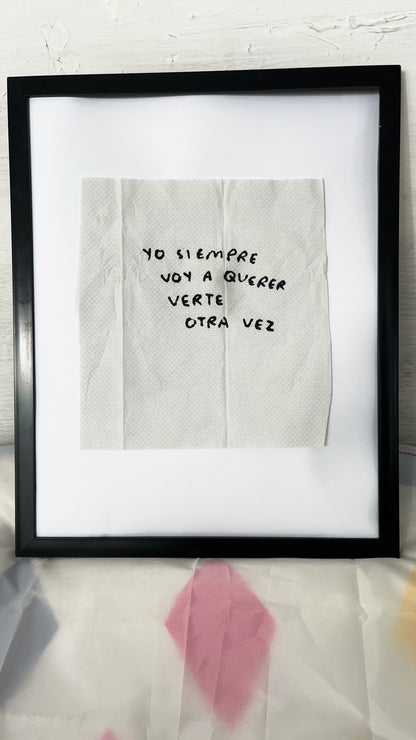 YO SIEMPRE
VOY A QUERER
VERTE
OTRA VEZ